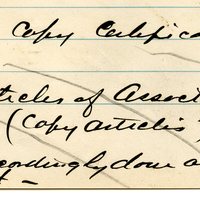 Copy Certifica
ticles of Associ
(Copy articles
cordingly done a